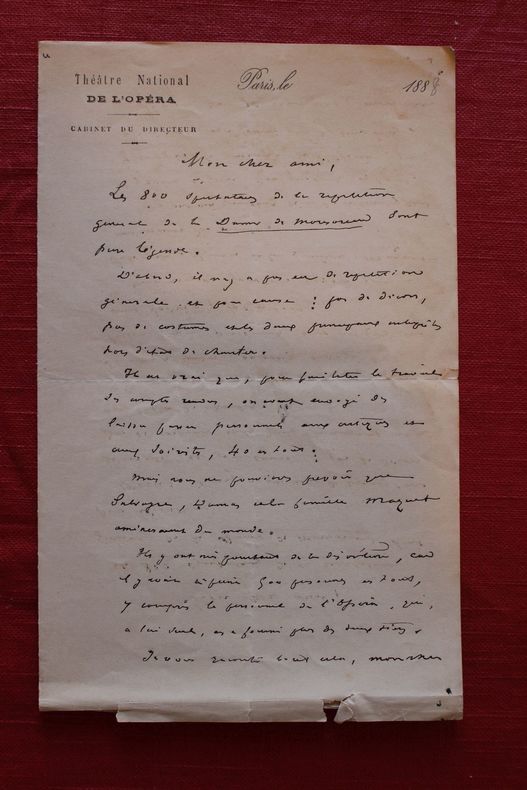 Théâtre National
DE L'OPÉRA
CABINET DU DIRECTEUR
Paris, le 1888
Mon cher ami,
Les 800 spectateurs de la répétition
générale de la Dame de Monsoreau sont
pure légende.
D'abord, il n'y a pas eu de répétition
générale et pour cause : pas de décors,
pas de costumes et les deux principaux
hors d'état de chanter.
Il est vrai que, pour faciliter le travail
des comptes rendus, on avait envoyé des
laissez passer personnels aux critiques et
aux soiristes, 40 en tout.
Mais nous ne pouvions prévoir que
Salvayre, et la famille Maquet
amèneraient du monde.
Ils y ont mis pourtant de la discrétion, car
il y avait à peine 500 personnes en tout,
y compris le personnel de l'Opéra, qui,
à lui seul, en a fourni plus des deux tiers.
Je vous raconte tout cela, mon cher